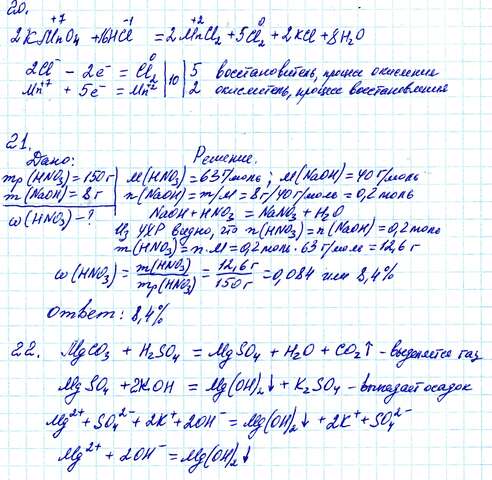 20.
+7 -1 +2 0
2KMnO4 + 16HCl = 2MnCl2 + 5Cl2 + 2KCl + 8H2O
2Cl⁻ - 2e⁻ = Cl2⁰ | 10 | 5 восстановитель, процесс окисления
Mn⁺⁷ + 5e⁻ = Mn⁺² | 2 окислитель, процесс восстановления
21.
Дано: Решение.
mр(HNO3) = 150 г M(HNO3) = 63 г/моль ; M(NaOH) = 40 г/моль
m(NaOH) = 8 г n(NaOH) = m/M = 8г/40 г/моль = 0,2 моль
ω(HNO3) - ? NaOH + HNO3 = NaNO3 + H2O
Из УХР видно, что n(HNO3) = n(NaOH) = 0,2 моль
m(HNO3) = n·M = 0,2 моль · 63 г/моль = 12,6 г
ω(HNO3) = m(HNO3)/mр(HNO3) = 12,6 г/150 г = 0,084 или 8,4%
Ответ: 8,4%
22. MgCO3 + H2SO4 = MgSO4 + H2O + CO2↑ - выделяется газ
MgSO4 + 2KOH = Mg(OH)2↓ + K2SO4 - выпадает осадок
Mg²⁺ + SO4²⁻ + 2K⁺ + 2OH⁻ = Mg(OH)2↓ + 2K⁺ + SO4²⁻
Mg²⁺ + 2OH⁻ = Mg(OH)2↓